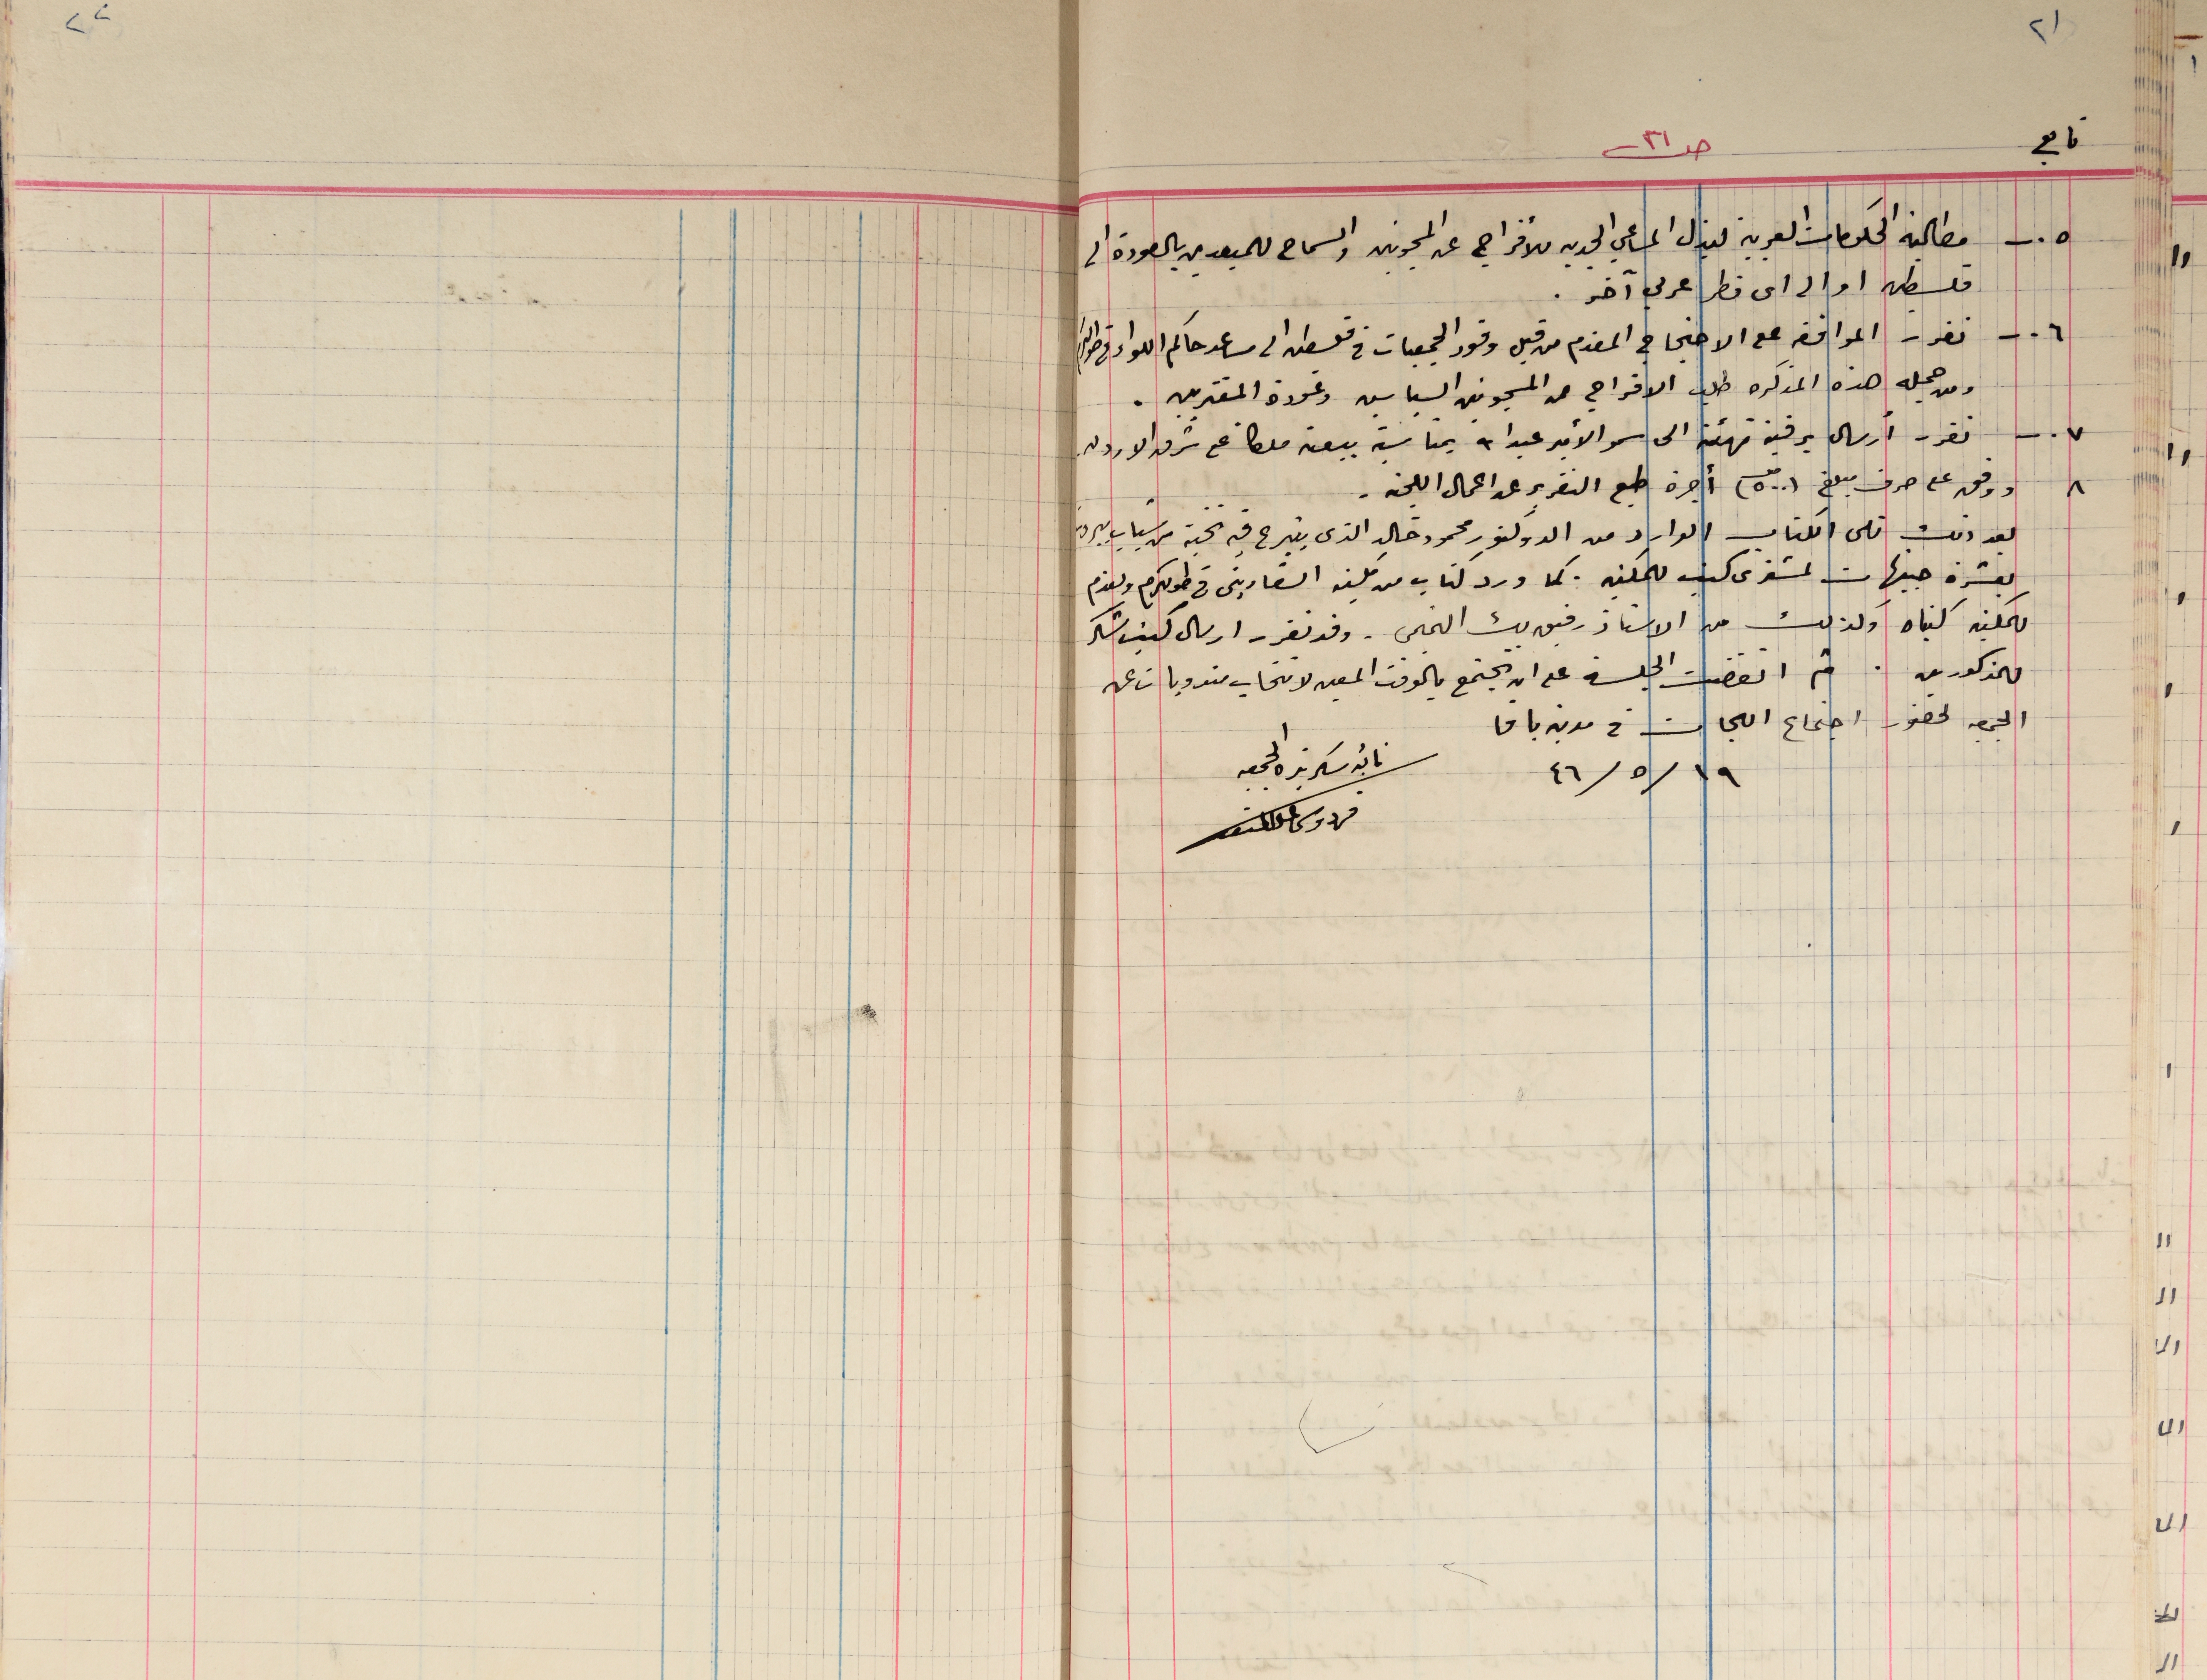 ٢١
تابع
ص ٣١
٥ - مطالبة الحكومات العربية لبذل المساعي الجديه للأفراج عن المسجونين والسماح للمبعدين بالعودة الى
فلسطين او الى اى قطر عربي آخر .
٦ - تقرر الموافقه على الاحتجاج المقدم من قبل وفود الجمعيات في فلسطين الى مساعد حاكم اللواء في طولكرم
ومن جملة هذه المذكره طلب الافراج عن المسجونين السياسين وعودة المغتربين .
٧ - تقرر أرسال برقية تهنئة الى سمو الأمير عبد الله بمناسبة بيعته ملكا على شرق الاردن.
٨ ووفق على صرف مبلغ (٥٠٠) أجرة طبع التقرير عن اعمال اللجنه .
بعد ذلك تلى الكتاب الوارد من الدوكتور محمود خالد الذى يتبرع فيه نخبة من شباب بيروت
بعشرة جنيهات لمشترى كتب للمكتبه . كما ورد كتاب من مكتبة في طولكرم وتقدم
للمكتبه كتباه وكذلك من الاستاذ رفيق بك التميمي . وقد تقرر ارسال كتب شكر
للمذكورين . ثم انفضت الجلسة على ان تجتمع بالوقت المعين لانتخاب مندوبات عن
الجمعيه لحضور اجتماع اللجات في مدينة يافا
١٩ / ٥ / ٤٦
نائبة سكرتيرة الجمعيه
٢٢